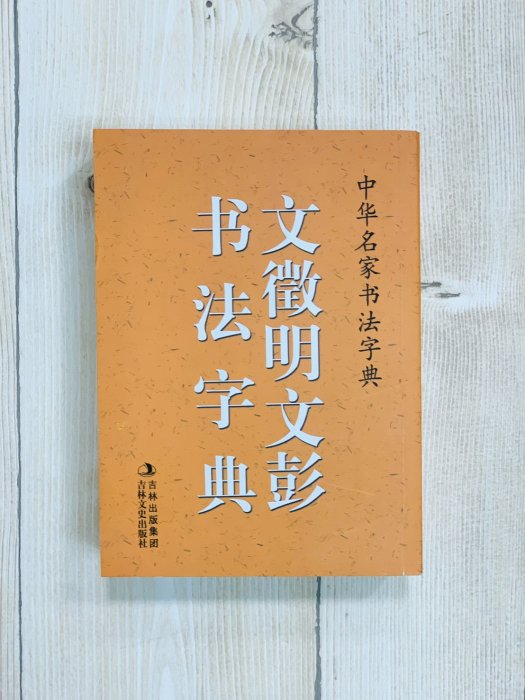 中华名家书法字典
文徵明文彭
书法字典
吉林出版集团
吉林文史出版社